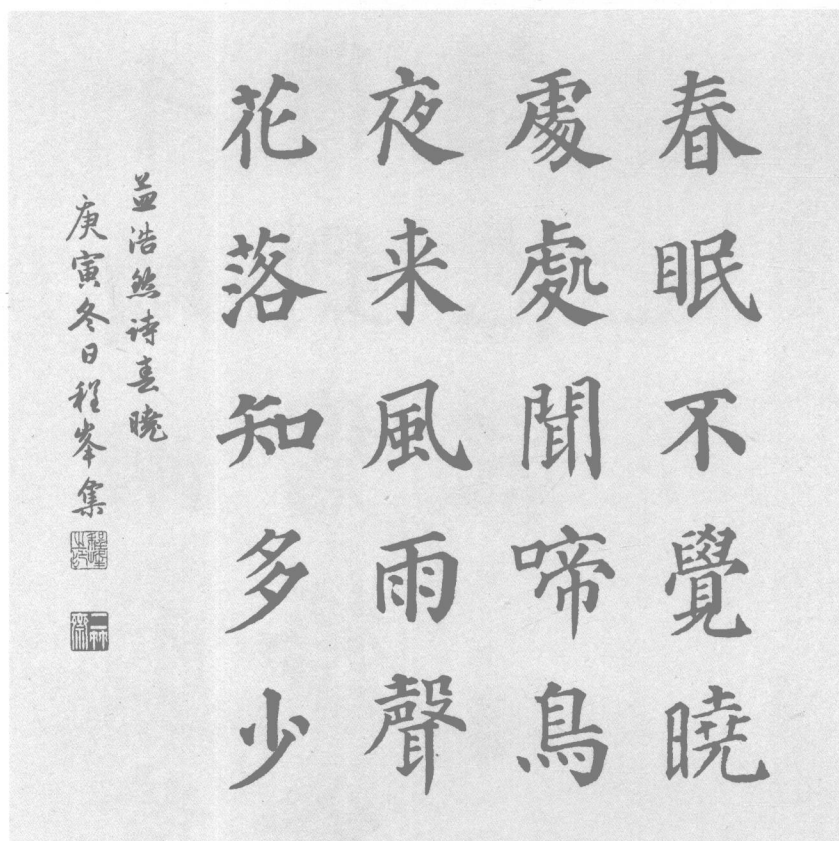 春眠不覺曉
處處聞啼鳥
夜来風雨聲
花落知多少
孟浩然诗春曉
庚寅冬日程峯集